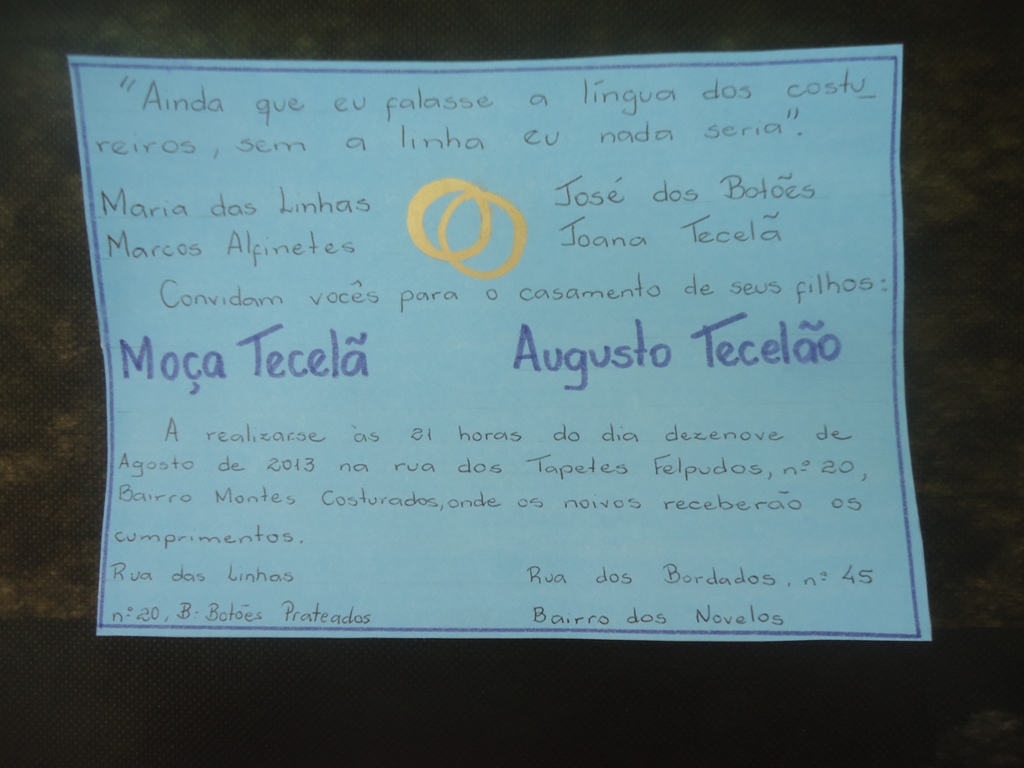 "Ainda que eu falasse a língua dos costu_
reiros, sem a linha eu nada seria".
Maria das Linhas
Marcos Alfinetes
José dos Botões
Joana Tecelã
Convidam vocês para o casamento de seus filhos:
Moça Tecelã Augusto Tecelão
A realizarse às 21 horas do dia dezenove de
Agosto de 2013 na rua dos Tapetes Felpudos, nº 20,
Bairro Montes Costurados, onde os noivos receberão os
cumprimentos.
Rua das Linhas
nº 20, B. Botões Prateados
Rua dos Bordados, nº 45
Bairro dos Novelos